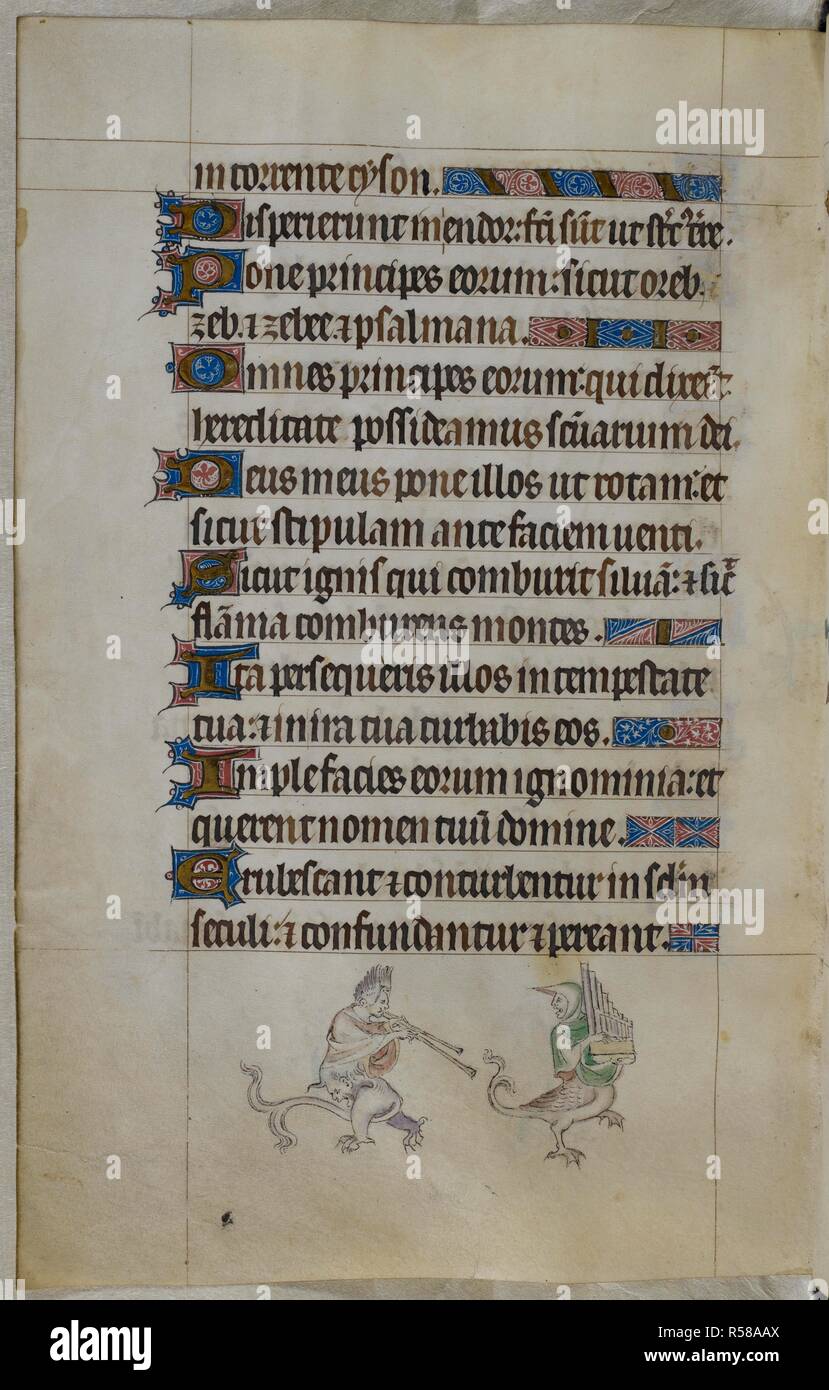 in torrente cyson.
Disperierunt inendor: fc̄i sūt ut st̄c t̄re.
Pone principes eorum: sicut oreb.
zeb. ⁊ zebee. ⁊ psalmana.
Omnes principes eorum: qui dixer̄t:
hereditate possideamus sc̄uarium dei.
Deus meus pone illos ut rotam: et
sicut stipulam ante faciem uenti.
Sicut ignis qui comburit siluā: ⁊ sic̄
flāma comburens montes.
Ita persequeris illos in tempestate
tua: ⁊ in ira tua turbabis eos.
Imple facies eorum ignominia: et
querent nomen tuū domine.
Erubescant ⁊ conturbentur in sc̄lm
seculi: ⁊ confundantur ⁊ pereant.
a
alamy
alamy stock photo
Image ID: R58AAX
www.alamy.com